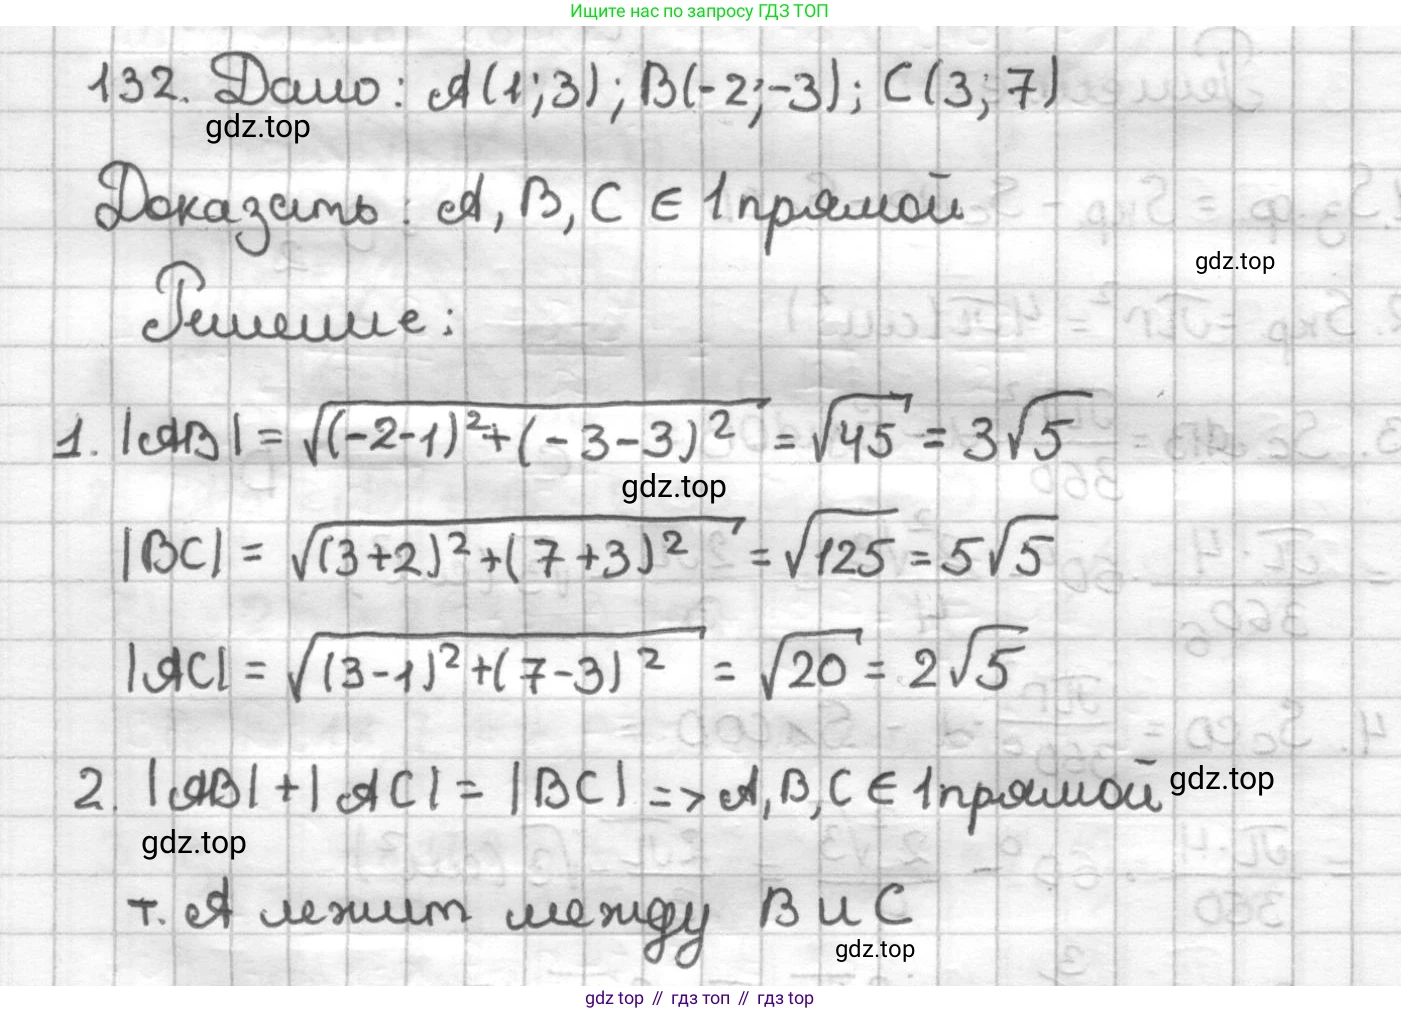 Ищите нас по запросу ГДЗ ТОП
132. Дано: A(1;3); B(-2;-3); C(3;7)
gdz.top
Доказать: A, B, C ∈ 1 прямой
gdz.top
Решение:
1. |AB| = √((-2-1)²+(-3-3)²) = √45 = 3√5
gdz.top
|BC| = √((3+2)²+(7+3)²) = √125 = 5√5
|AC| = √((3-1)²+(7-3)²) = √20 = 2√5
2. |AB|+|AC| = |BC| => A, B, C ∈ 1 прямой
gdz.top
gdz.top
т. A лежит между B и C
gdz.top
gdz top // гдз топ // гдз top